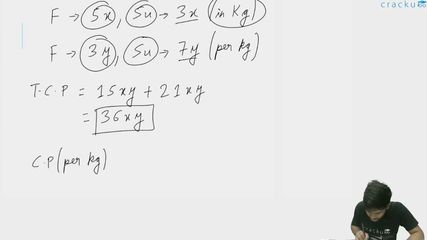 cracku
F → 5x, Su → 3x (in Kg)
F → 3y, Su → 7y (per kg)
T.C.P = 15xy + 21xy
= 36xy
C.P (per kg)
cracku